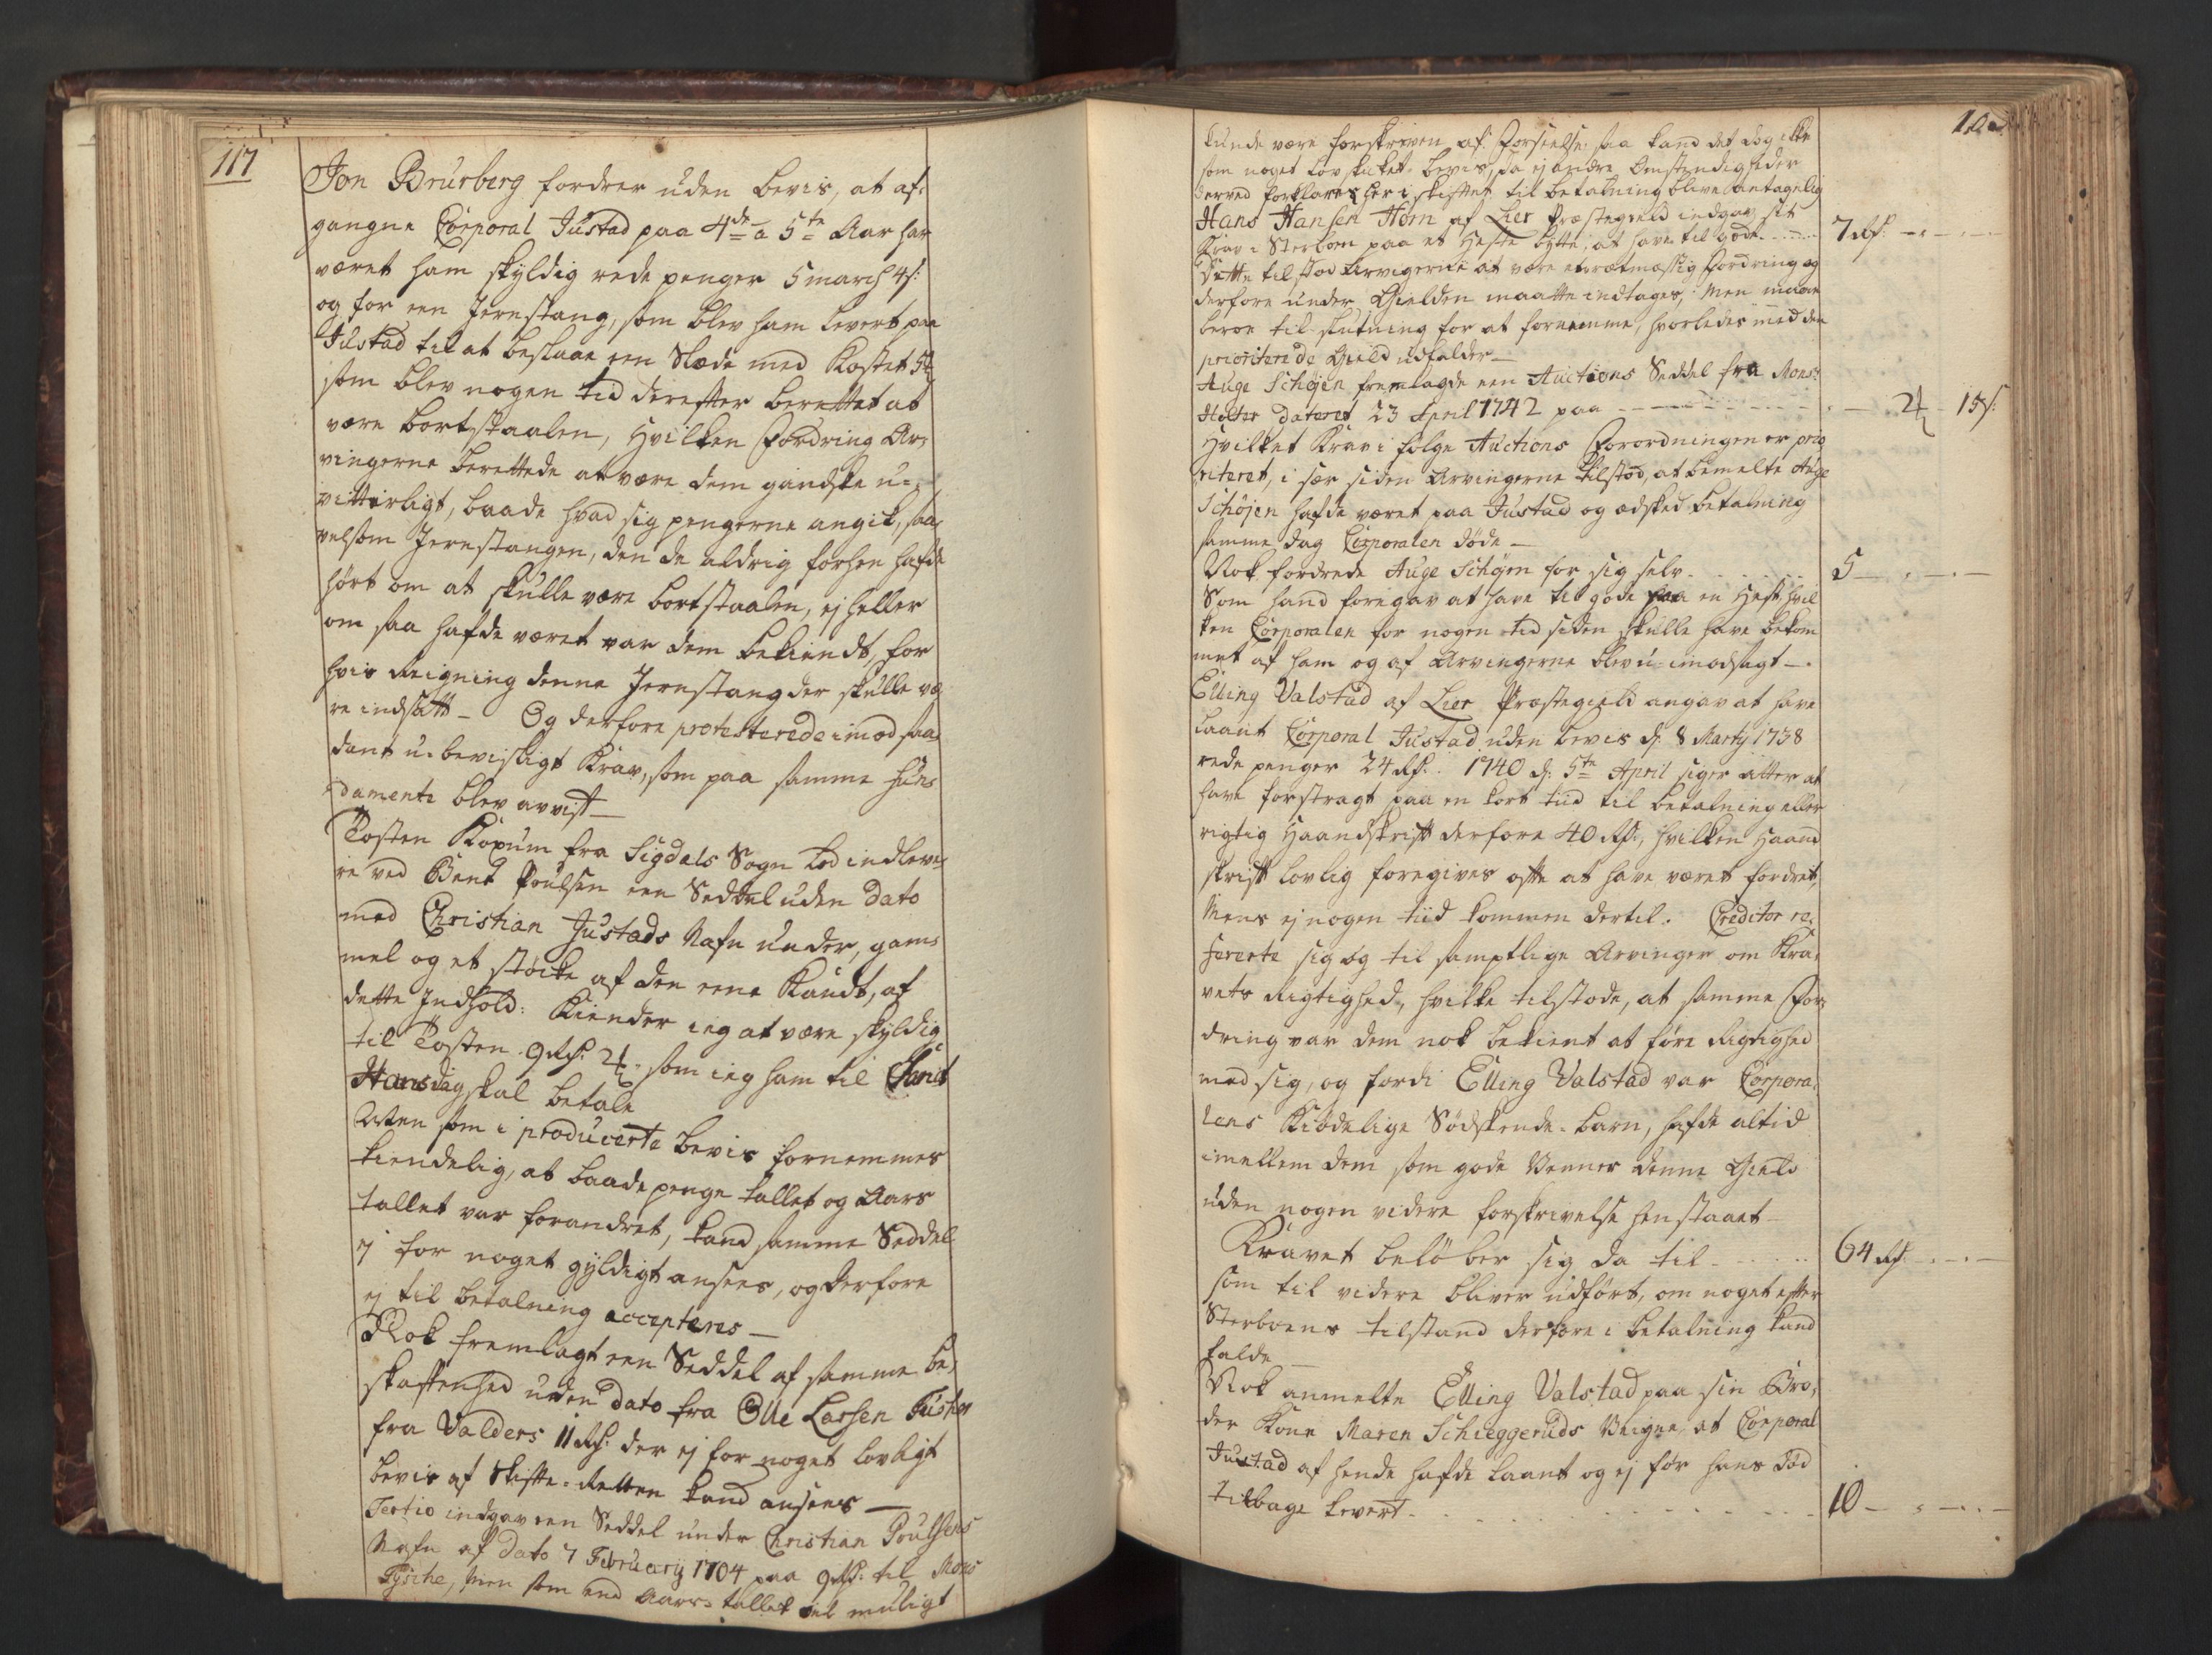 117
Jon Brurberg fordrer uden bevis, at af-
gangne Corporal Justad paa 4de a 5te Aar har
været ham skyldig rede penger 5 march 4 s:
og for een Jernstang, som blev ham levert paa
Justad til at beslaae een Slæde med kostet
som blev nogen tid derefter berettet at
være bortstaalen, hvilken Fordring Ar-
vingerne berettede at være dem gandske u-
vitterligt, baade hvad sig pengerne angik, saa
velsom Jernstangen, den de aldrig forhen hafde
hørt om at skulle være bortstaalen, ej heller
om saa hafde været var dem bekiendt, for
hvis Reigning denne Jernstang der skulle væ
re indsatt – Og derfore protesterede imod saa
dant u-bevisligt Krav, som paa samme Fun-
damente blev avvist –
Tosten Kopum fra Sigdals Sogn lod indleve
re ved Bent Poulsen een Seddel uden dato
med Christian Justads Nafn under, gam-
mel og et støcke af den eene Kandt, af
dette Indhold: Kiender ieg at være skyldig
til Tosten 9 Rd: 2 som ieg ham til Sanct
Hansdag skal betale
Men som i producerte bevis fornemmes
kiendelig, at baade penge tallet og Aars
tallet var forandret, kand samme Seddel
ej for noget gyldigt ansees, og derfore
ej til betalning accepteres –
Nok fremlagt een Seddel af samme be-
skaffenhed uden dato fra Olle Larsen
fra Valders 11 Rd: der ej for noget lovligt
bevis af Skifte-Retten kand ansees –
Tertio indgav een Seddel under Christian Poulsens
Nafn af dato 7 February 1704 paa 9 Rd: til Mons
Tysche, Men som end Aars-tallet vel muligt
kunde være forskreven af Forseelse, saa kand det dog ikke
som noget lovskicket bevis, da ej andre Omstendigheder
derved forklares her i skiftet til betalning blive antagelig
Hans Hansen Horn af Lier Præstegield indgav sit
Krav i Sterboen paa et Heste bytte, at have til gode 7 Rd: – " –
Dette tilstod Arvigerne at være et rætmæssig Fordring og
derfore under Gielden maatte indtages, Men maae
beroe til slutning for at fornemme, hvorledes med den
prioriterede Gield udfalder –
Auge Schøjen fremlagde een Auctions Seddel fra Monsr
Holter dateret 23 April 1742 paa – 2 – 15 s:
Hvilket Krav i følge Auctions Forordningen er prio
riteret, i sær siden Arvingerne tilstod, at bemelte Auge
Schøjen hafde været paa Justad og ædsked betalning
samme dag Corporalen døde –
Nok fordrede Auge Schøjen for sig selv 5 – " –
Som hand foregav at have til gode paa en Hest, hvil
ken Corporalen for nogen tid siden skulle have bekom
met af ham og af Arvingerne blev u-imodsagt –
Elling Valstad af Lier Præstegield angav at have
laant Corporal Justad uden bevis d: 8 Martij 1738
rede penger 24 Rd: 1740 d: 5te April siger atter at
have forstragt paa en kort tiid til betalning eller
rigtig Haandskrift derfore 40 Rd:, hvilken Haand
skrift lovlig foregives ofte at have været fordret,
Mens ej nogen tiid kommen dertil. Creditor re-
fererte sig og til samptlige Arvinger om Kra-
vets Rigtighed, hvilke tilstode, at samme For-
dring var dem nok bekient at føre Rigtighed
med sig, og fordi Elling Valstad var Corpora-
lens Kiødelige Sødskende-barn, hafde altid
imellem dem som gode Venner denne Gield
uden nogen videre forskrivelse henstaaet –
Kravet beløber sig da til 64 Rd: – " –
som til videre bliver udført, om noget efter
Sterboens tilstand derfore i betalning kand
falde –
Nok anmelte Elling Valstad paa sin Bro-
der Kone Maren Schieggeruds Veigne, at Corporal
Justad af hende hafde laant og ej før hans død
tilbage levert 10 – " –